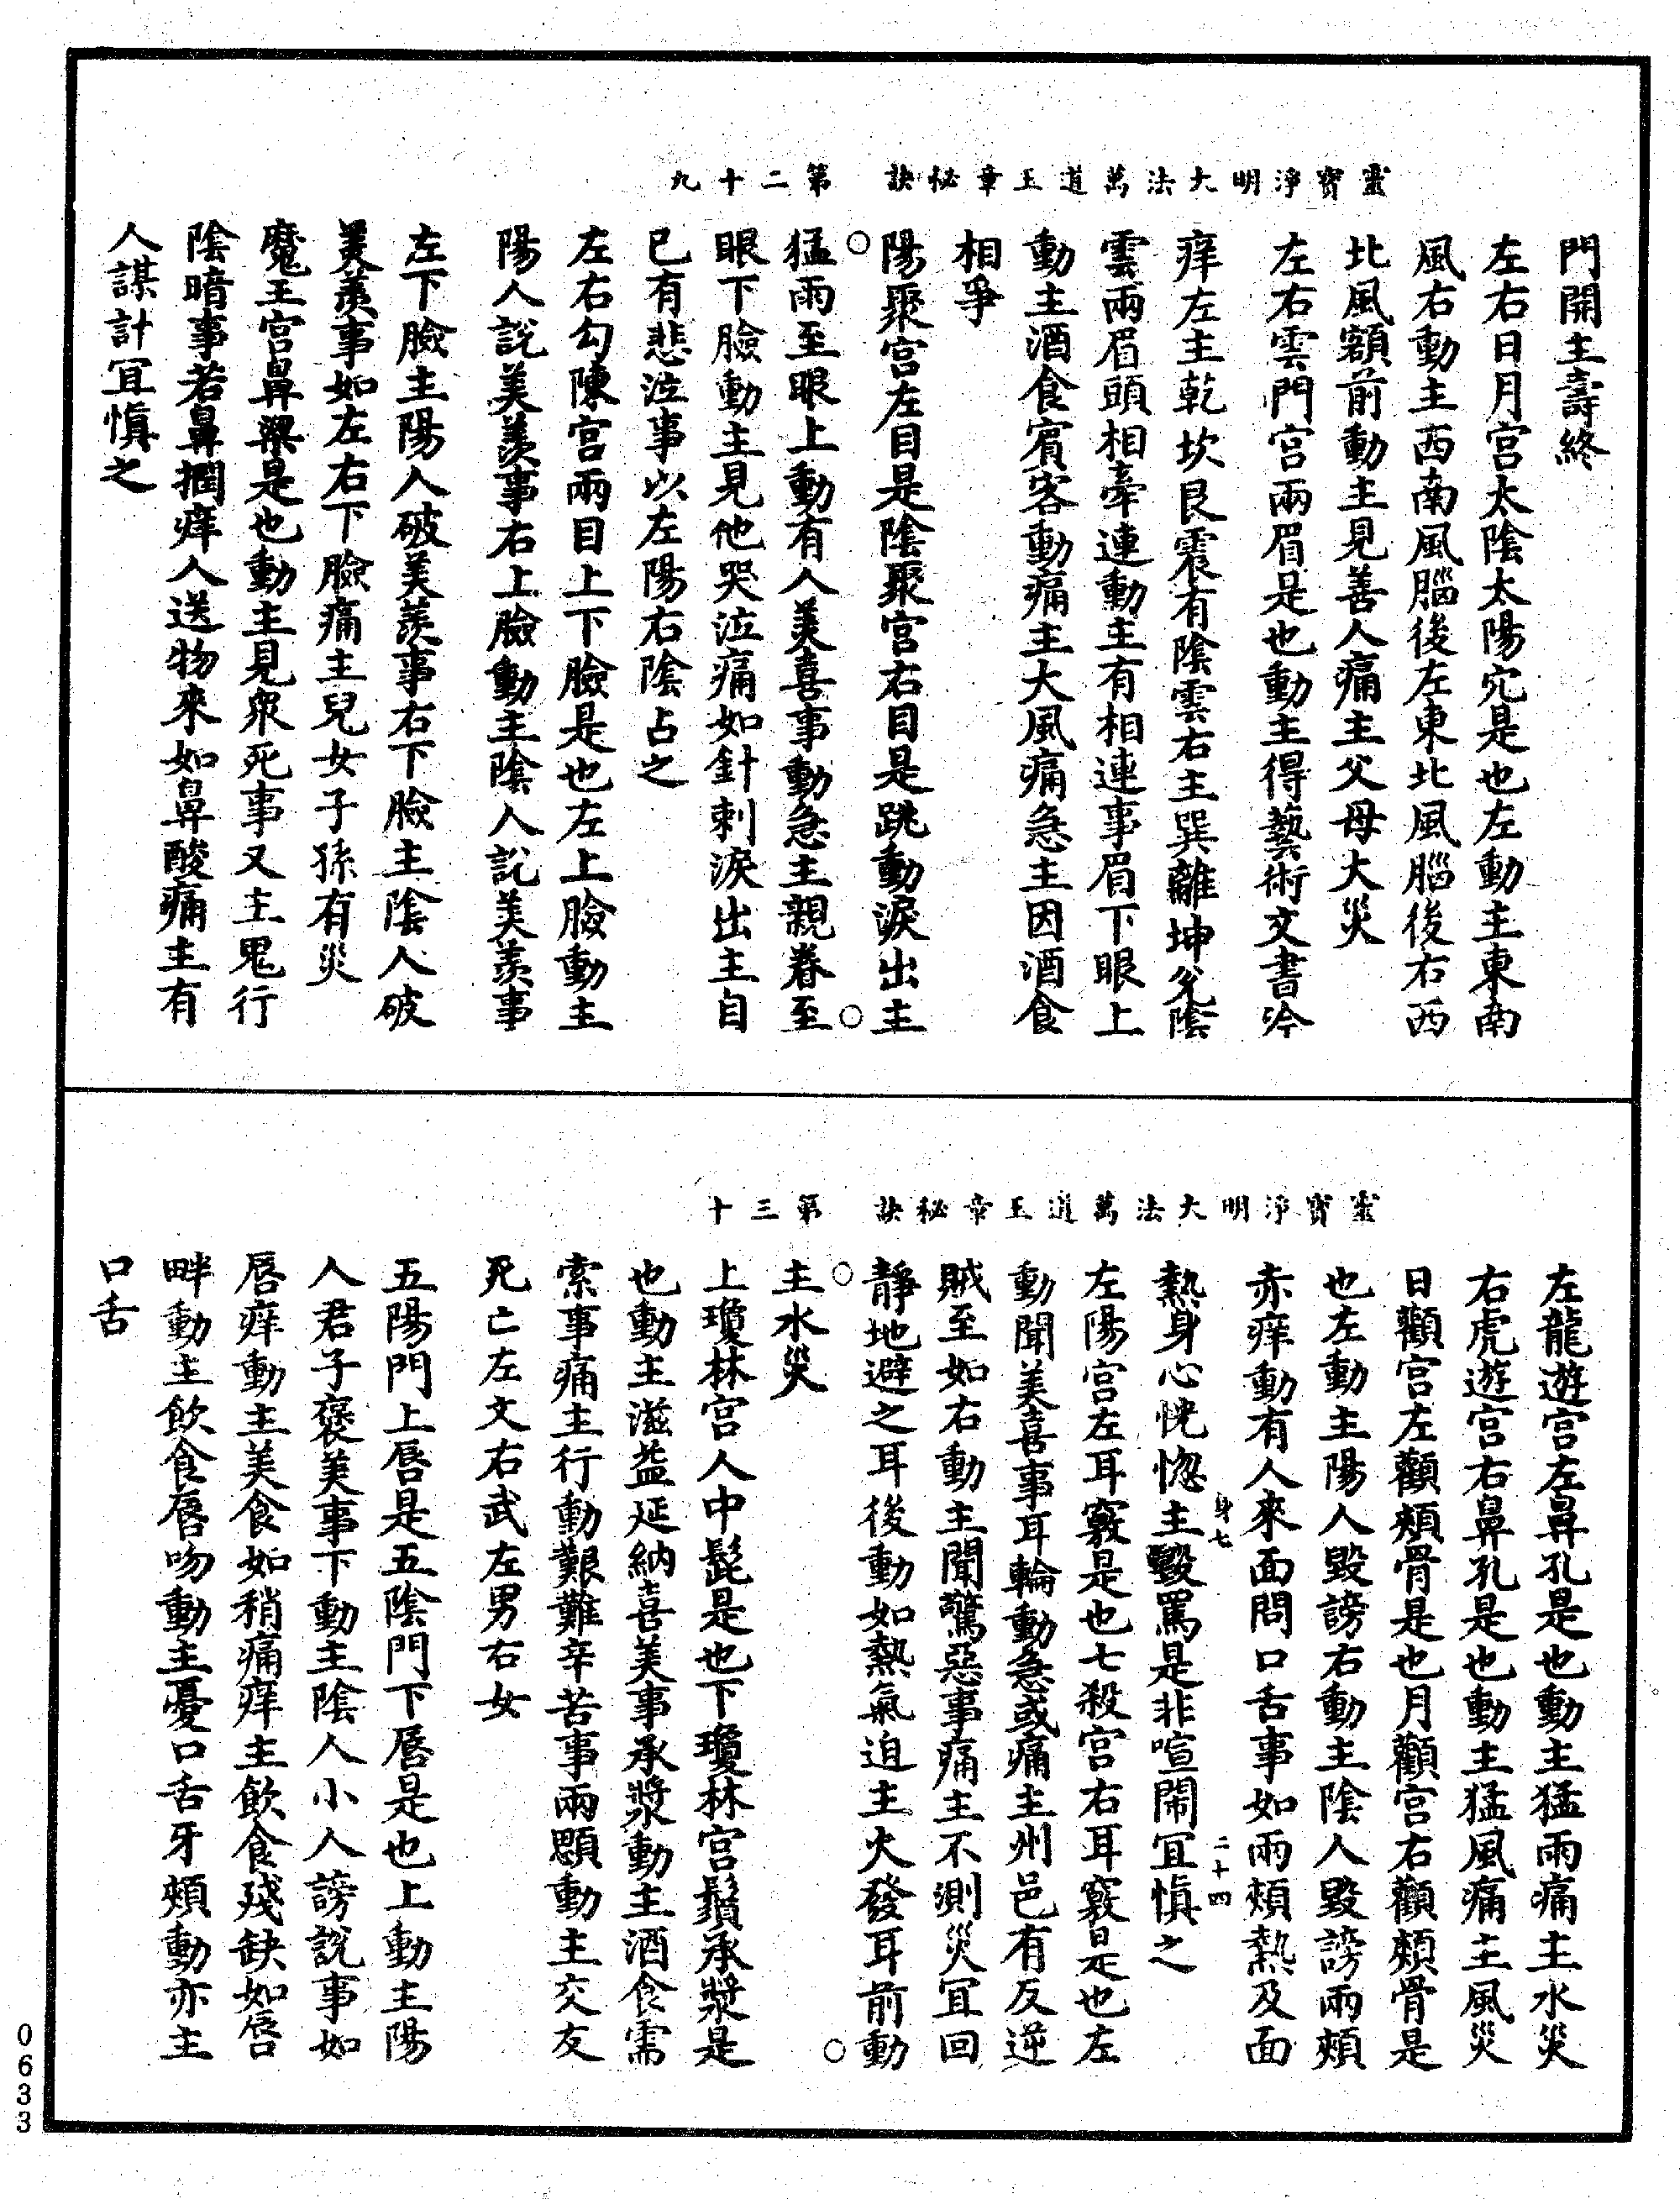 靈寶淨明大法萬道王章秘訣　第二十九
門開主壽終
左右日月宮太陰太陽穴是也左動主東南
風右動主西南風腦後左東北風腦後右西
北風額前動主見善人痛主父母大災
左右雲門宮兩眉是也動主得藝術文書吟
痒左主乾坎艮震有陰雲右主巽離坤兌陰
雲兩眉頭相牽連動主有相連事眉下眼上
動主酒食賓客動痛主大風痛急主因酒食
相爭
陽聚宮左目是陰聚宮右目是跳動淚出主
猛雨至眼上動有人美喜事動急主親眷至
眼下臉動主見他哭泣痛如針刺淚出主自
已有悲泣事以左陽右陰占之
左右勾陳宮兩目上下臉是也左上臉動主
陽人說美羨事右上臉動主陰人說美羨事
左下臉主陽人破美羨事右下臉主陰人破
美羨事如左右下臉痛主兒女子孫有災
魔王宮鼻梁是也動主見衆死事又主鬼行
陰暗事若鼻擱痒人送物來如鼻酸痛主有
人謀計冝慎之
靈寶淨明大法萬道王章秘訣　第三十
左龍遊宮左鼻孔是也動主猛雨痛主水災
右虎遊宮右鼻孔是也動主猛風痛主風災
日顴宮左顴頰骨是也月顴宮右顴頰骨是
也左動主陽人毀謗右動主陰人毀謗兩頰
赤痒動有人來面問口舌事如兩頰熱及面
身七　二十四
熱身心恍惚主毀罵是非喧鬧冝慎之
左陽宮左耳竅是也七殺宮右耳竅是也左
動聞美喜事耳輪動急或痛主州邑有反逆
賊至如右動主聞驚惡事痛主不測災冝回
靜地避之耳後動如熱氣迫主火發耳前動
主水災
上瓊林宮人中髭是也下瓊林宮鬚承漿是
也動主滋益延納喜美事承漿動主酒食需
索事痛主行動艱難辛苦事兩顋動主交友
死亡左文右武左男右女
五陽門上唇是五陰門下唇是也上動主陽
人君子褒美事下動主陰人小人謗說事如
唇痒動主美食如稍痛痒主飲食殘缺如唇
畔動主飲食唇吻動主憂口舌牙頰動亦主
口舌
0633